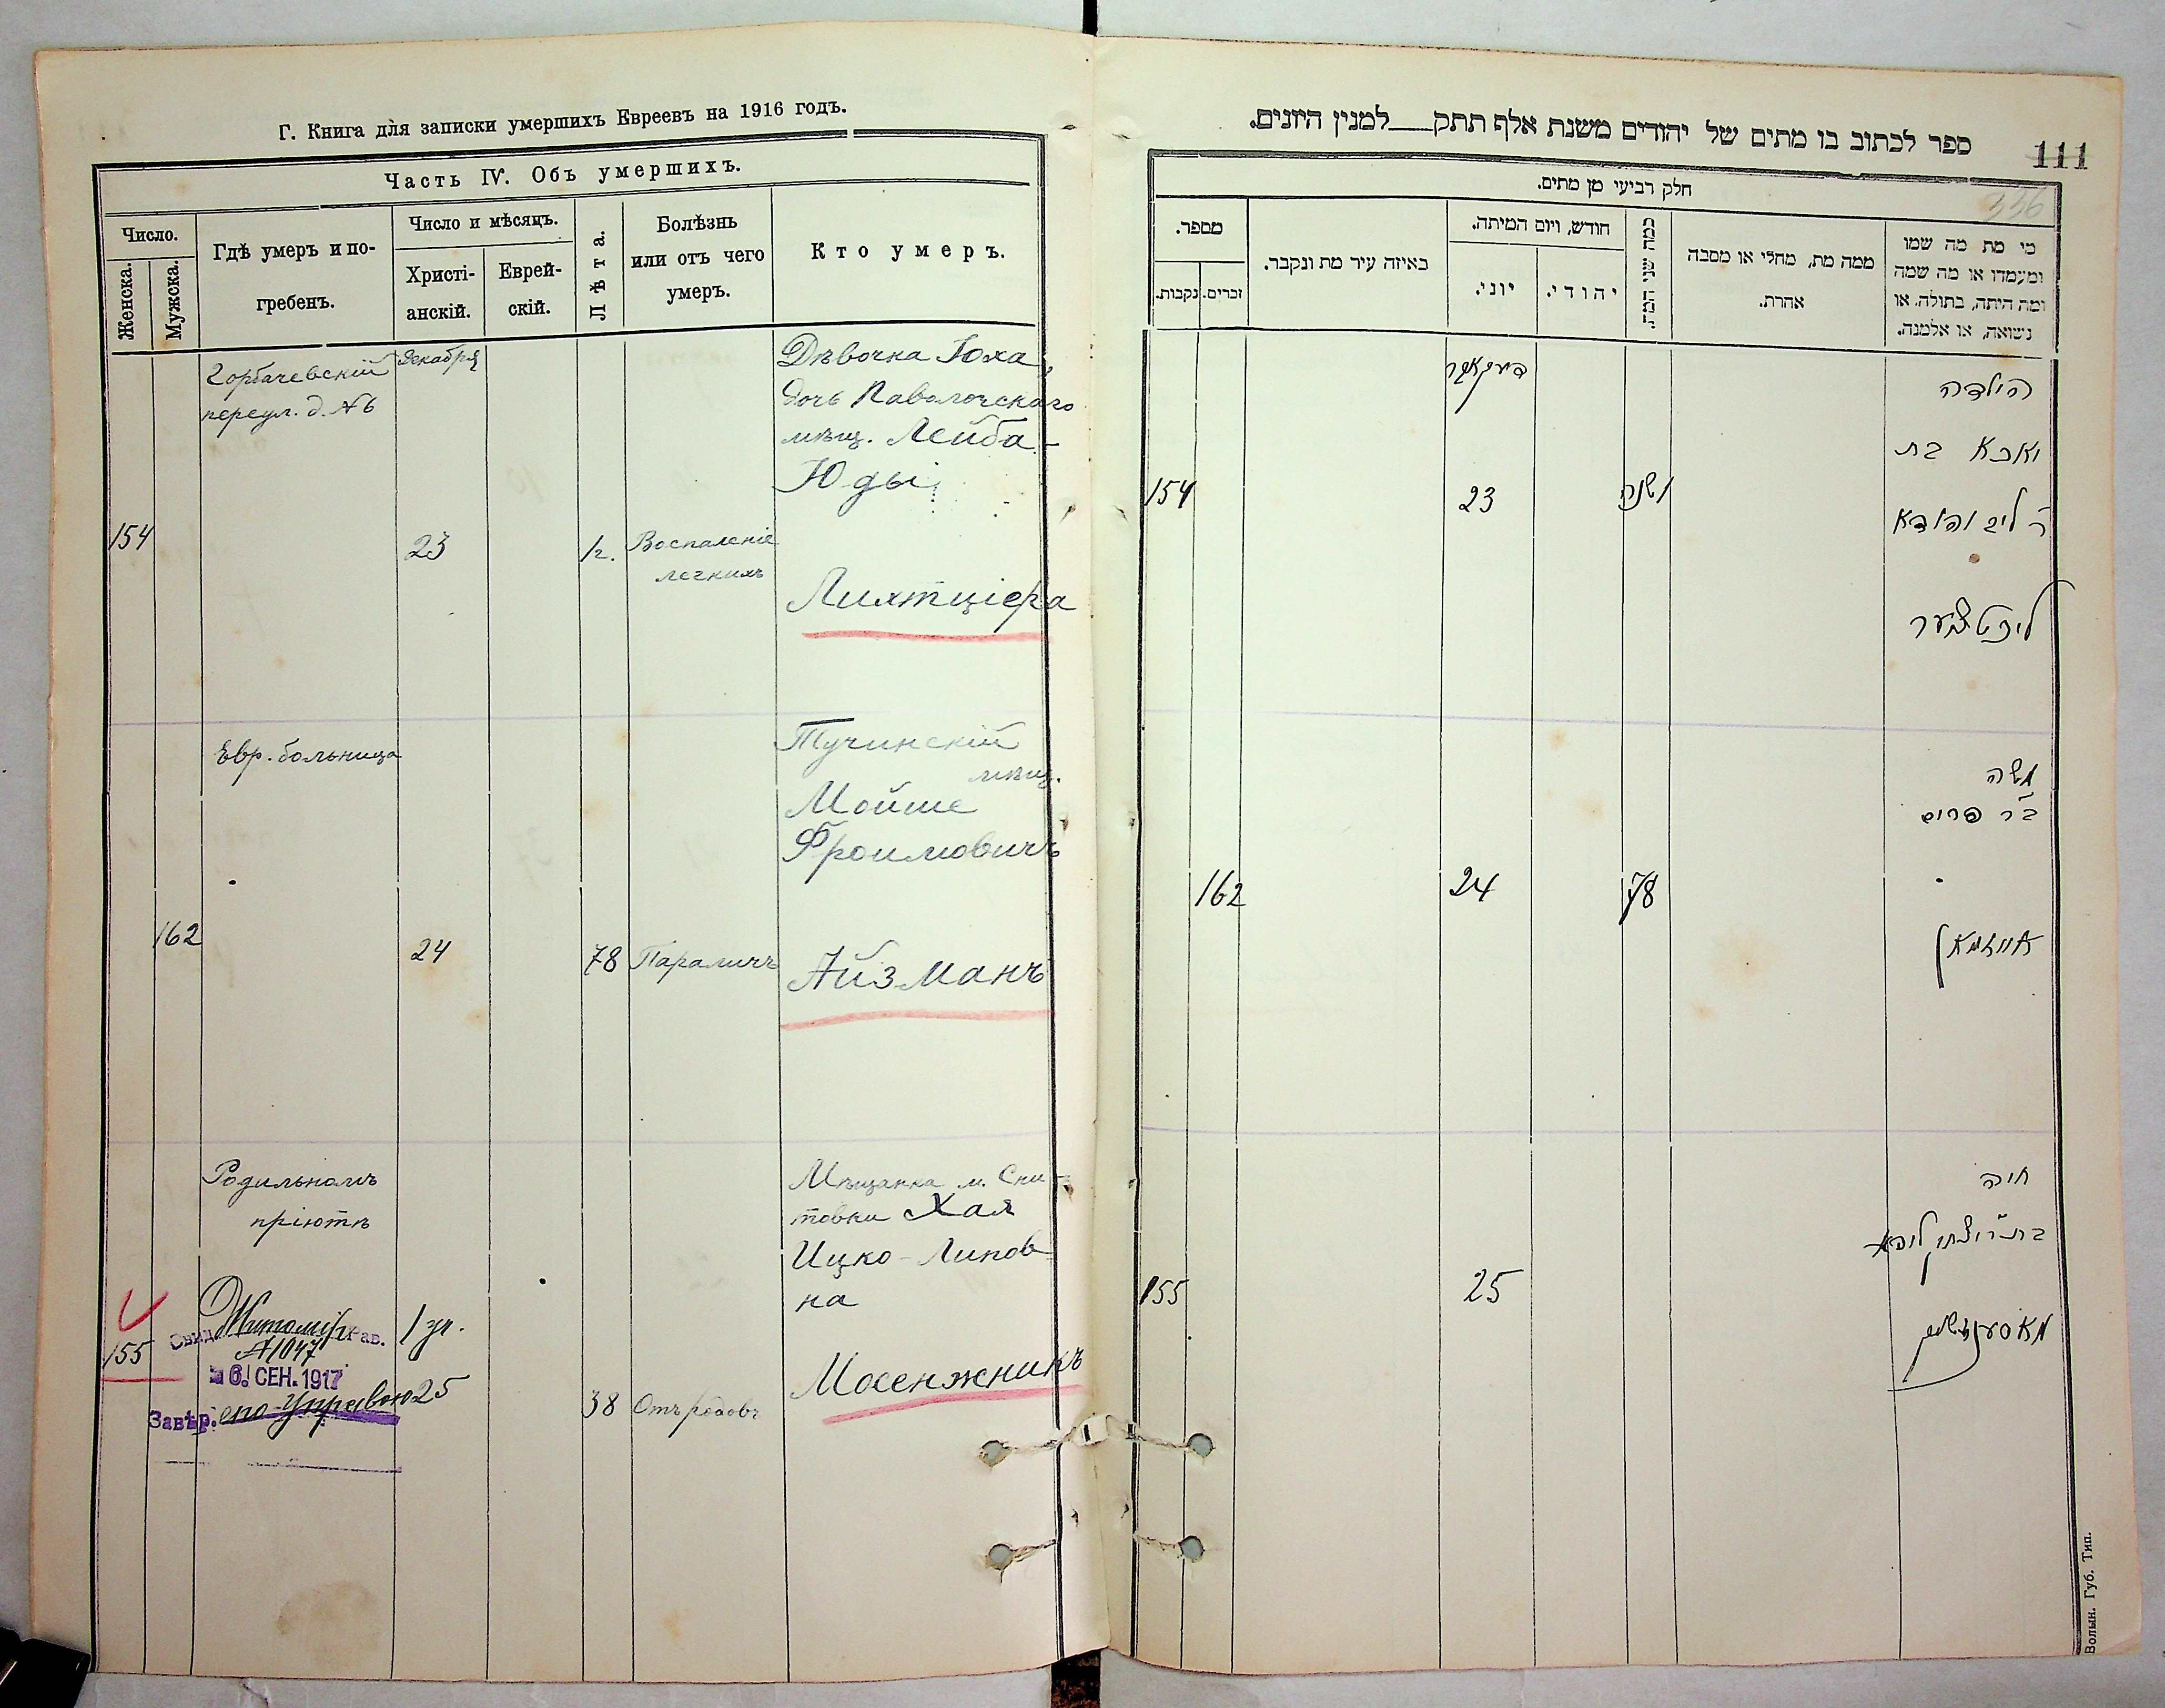 Г. Книга для записки умершихъ Евреевъ на 1916 годъ.
Часть IV. Объ умершихъ.
Число.
Женска.
Мужска.
Гдѣ умеръ и по-
гребенъ.
Число и мѣсяцъ.
Христі-
анскій.
Еврей-
скій.
Лѣта.
Болѣзнь
или отъ чего
умеръ.
Кто умеръ.
154
Горбачевскій
переул. д. № 6
Декабря
23
1 г.
Воспаленіе
легкихъ
Дѣвочка Юха,
дочь Паволочскаго
мѣщ. Лейба-
Юды
Лихтціера
162
Евр. больница
24
78
Параличъ
Тучинскій
мѣщ.
Мойше
Фроимовичъ
Айзманъ
155
Родильномъ
пріютѣ
Свид.
Житомір
ав.
№ 1047
6. СЕН. 1917
Завѣр.
Управою
25
38
Отъ родовъ
Мѣщанка м. Сни-
товки Хая
Ицко-Липов-
на
Мосенжникъ
ספר לכתוב בו מתים של יהודים משנת אלף תתק___למנין היונים.
111
336
חלק רביעי מן מתים.
מספר.
נקבות.
זכרים.
באיזה עיר מת ונקבר.
חודש, ויום המיתה.
יוני.
יהודי.
כמה שני המת.
ממה מת, מחלי או מסבה
אהרת.
מי מת מה שמו
ומעמדו או מה שמה
ומה היתה, בתולה, או
נשואה, או אלמנה.
154
דעקאבר
23
1 שנה
הילדה
יאכא בת
ר' ליב יהודא
ליכטציער
162
24
78
משה
ב"ר פרוים
אייזמאן
155
25
חיה
בת ר' יצחק ליפא
מאסענזשניק
Волын. Губ. Тип.